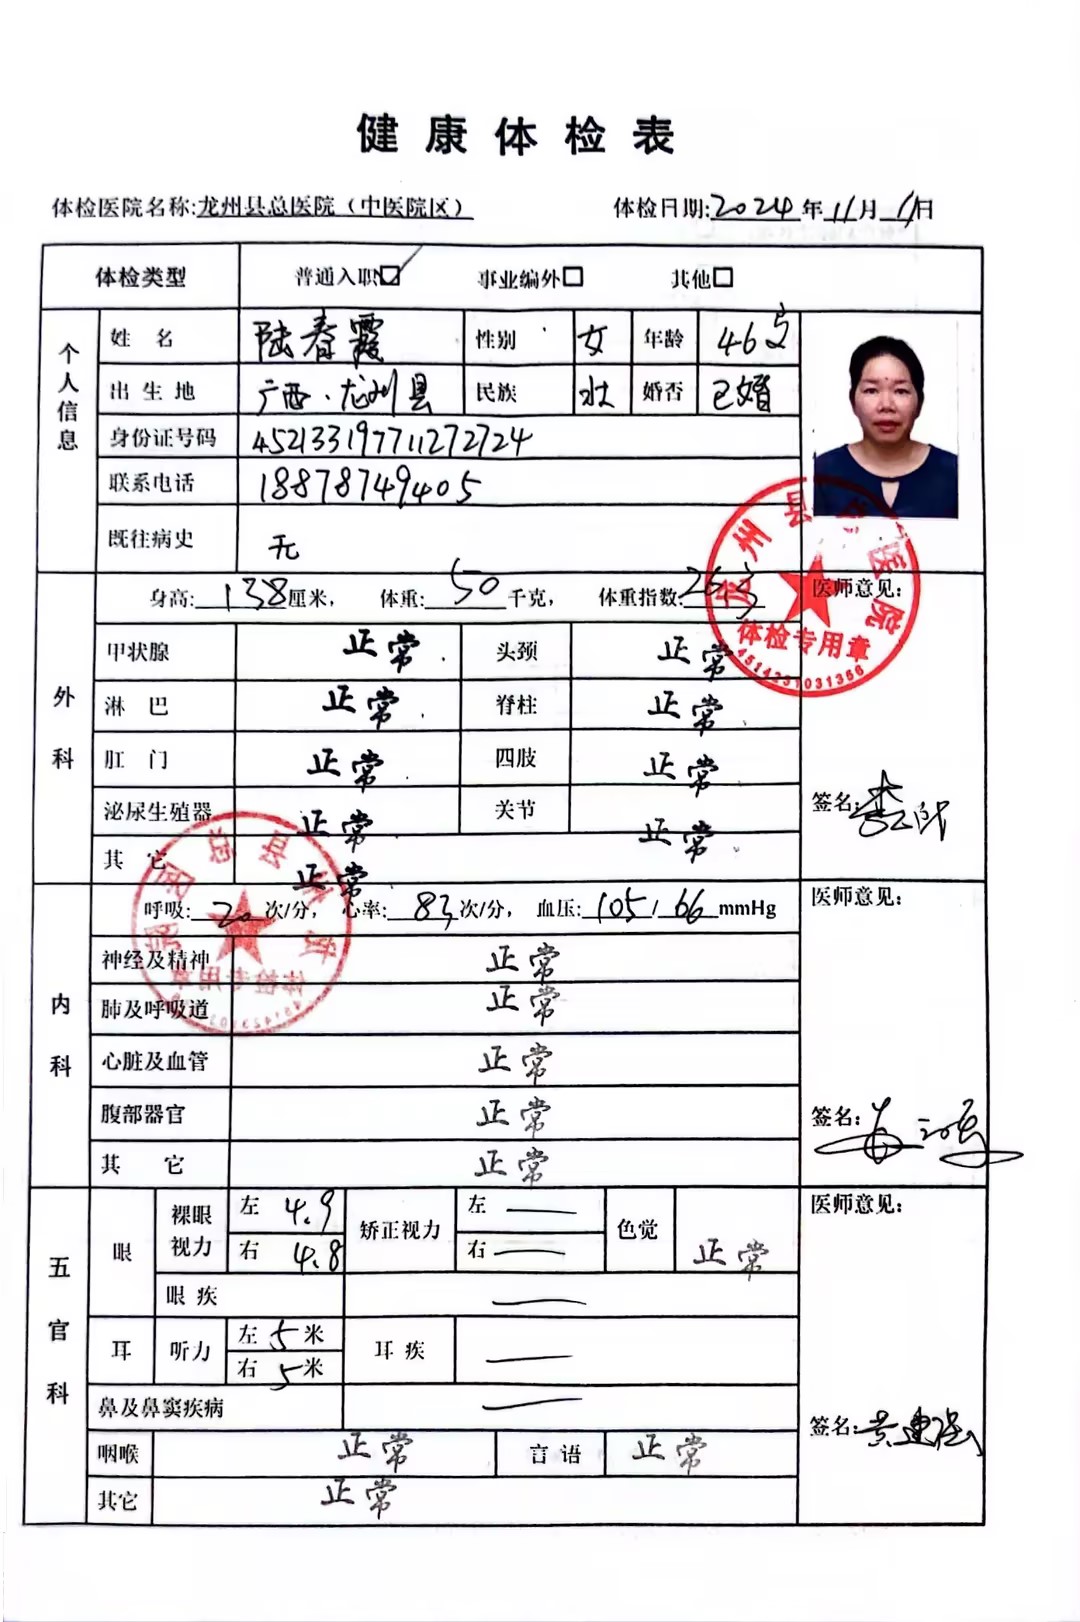 健康体检表
体检医院名称:龙州县总医院（中医院区） 体检日期:2024年11月11日
体检类型 普通入职☑ 事业编外□ 其他□
个人信息
姓 名 陆春霞 性别 女 年龄 46岁
出生地 广西·龙州县 民族 壮 婚否 已婚
身份证号码 452133197711272724
联系电话 18878749405
既往病史 无
外科
身高:138厘米， 体重:50千克， 体重指数:26.3 医师意见:
甲状腺 正常 头颈 正常
淋 巴 正常 脊柱 正常
肛 门 正常 四肢 正常
泌尿生殖器 正常 关节 正常 签名:
其 它 正常
龙州县总医院
体检专用章
内科
呼吸:20次/分， 心率:83次/分， 血压:105/66mmHg 医师意见:
神经及精神 正常
肺及呼吸道 正常
心脏及血管 正常
腹部器官 正常 签名:
其 它 正常
五官科
眼 裸眼视力 左 4.9 右 4.8 矫正视力 左 — 右 — 色觉 正常 医师意见:
眼疾 —
耳 听力 左 5米 右 5米 耳疾 —
鼻及鼻窦疾病 — 签名:黄建强
咽喉 正常 言语 正常
其它 正常